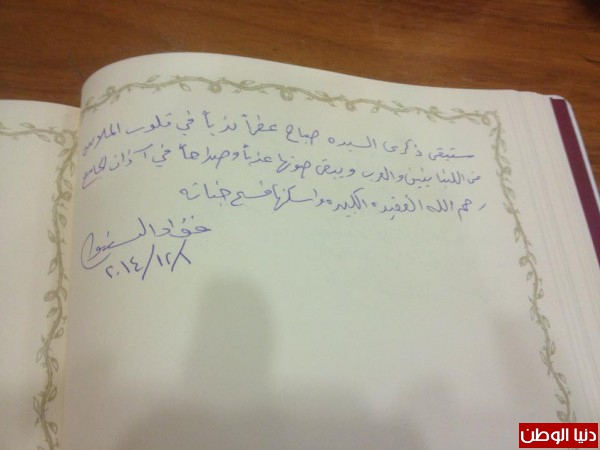 ستبقى ذكرى السيده صباح عطراً ندياً في قلوب الملايين
من اللبنانيين والعرب ويبقى صوتها عذباً وصداحاً في آذان الجميع
رحم الله الفقيده الكبيره واسكنها فسيح جناته
فؤاد السنيورة
٢٠١٤/١٢/١
دنيا الوطن